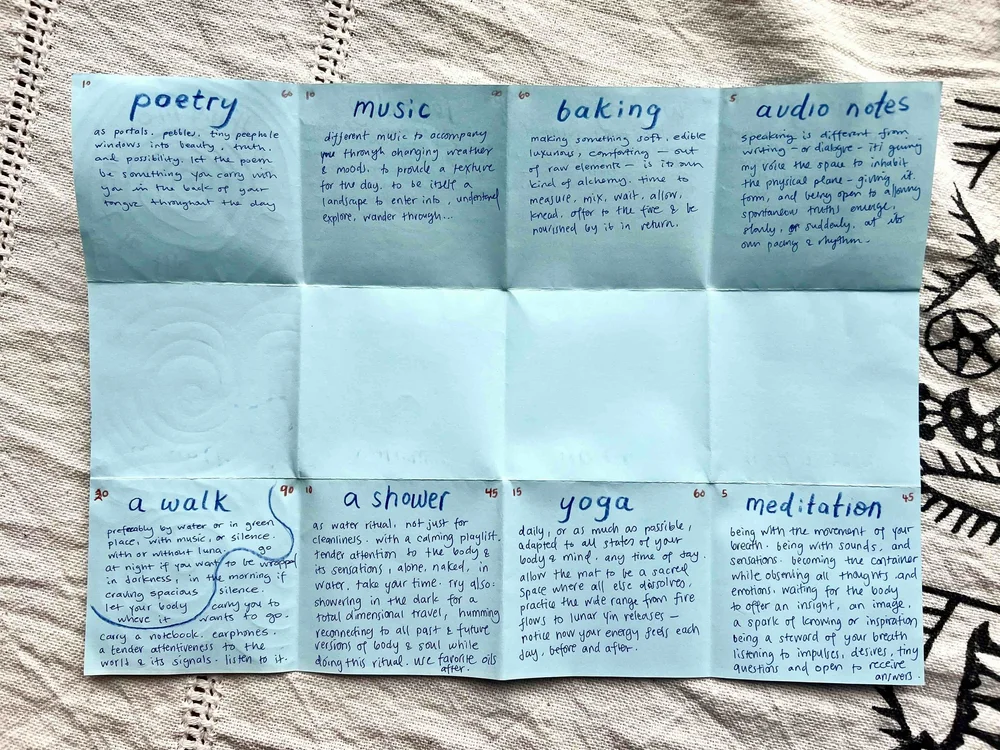 10 60
poetry
as portals. pebbles. tiny peephole
windows into beauty. truth.
and possibility. let the poem
be something you carry with
you in the back of your
tongue throughout the day
10 90
music
different music to accompany
you through changing weather
& moods. to provide a texture
for the day. to be itself a
landscape to enter into, understand
explore, wander through...
60
baking
making something soft, edible
luxurious, comforting — out
of raw elements — is its own
kind of alchemy. time to
measure, mix, wait, allow,
knead, offer to the fire & be
nourished by it in return.
5
audio notes
speaking is different from
writing - or dialogue - it's giving
my voice the space to inhabit
the physical plane - giving it
form, and being open to allowing
spontaneous truths emerge,
slowly, or suddenly, at its
own pacing & rhythm -
20 90
a walk
preferably by water or in green
place, with music, or silence.
with or without luna. go
at night if you want to be wrapped
in darkness, in the morning if
craving spacious silence.
let your body carry you to
where it wants to go.
carry a notebook. earphones.
a tender attentiveness to the
world & its signals. listen to it.
10 45
a shower
as water ritual, not just for
cleanliness. with a calming playlist.
tender attention to the body &
its sensations, alone, naked, in
water. take your time. try also:
showering in the dark for a
total dimensional travel, humming
reconnecting to all past & future
versions of body & soul while
doing this ritual. use favorite oils
after.
15 60
yoga
daily, or as much as possible,
adapted to all states of your
body & mind. any time of day.
allow the mat to be a sacred
space where all else dissolves,
practice the wide range from fire
flows to lunar yin releases —
notice how your energy feels each
day, before and after.
5 45
meditation
being with the movement of your
breath. being with sounds, and
sensations. becoming the container
while observing all thoughts and
emotions, waiting for the body
to offer an insight, an image,
a spark of knowing or inspiration
being a steward of your breath
listening to impulses, desires, tiny
questions and open to receive
answers.